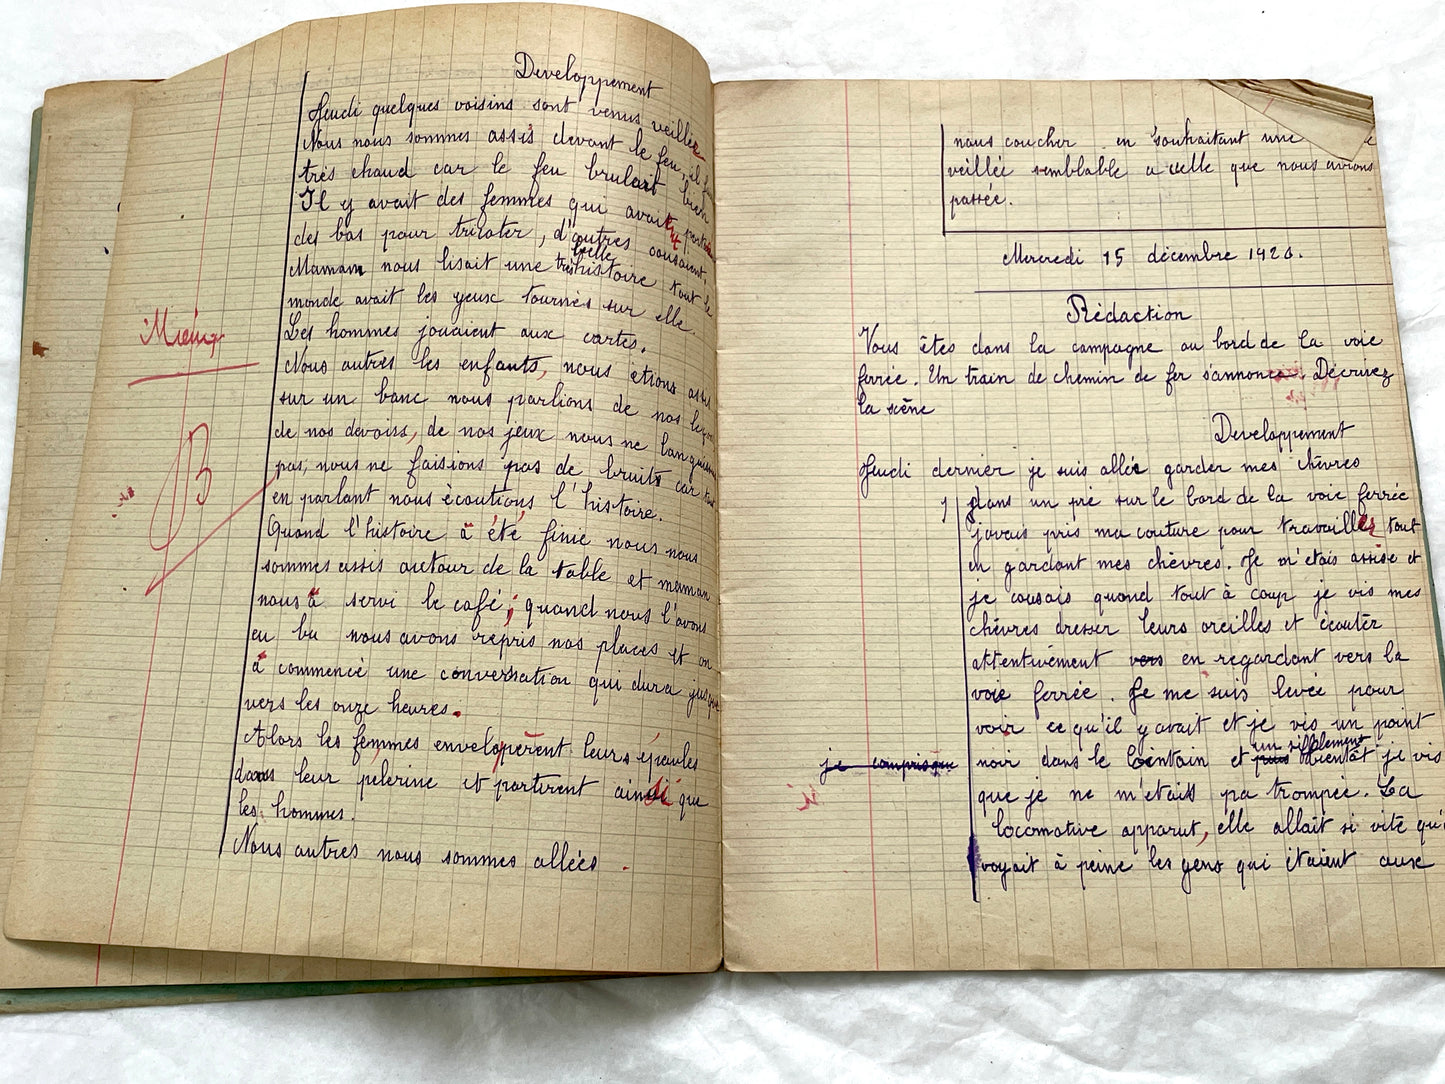 Developpement
Jeudi quelques voisins sont venus veiller
Nous nous sommes assis devant le feu, il
très chaud car le feu brulait bien
Il y avait des femmes qui avaient
des bas pour tricoter, d'autres cousaient.
belle
Maman nous lisait une très histoire tout le
monde avait les yeux tournés sur elle.
Les hommes jouaient aux cartes.
Nous autres les enfants, nous étions assis
sur un banc nous parlions de nos leçons
de nos devoirs, de nos jeux nous ne
pas; nous ne faisions pas de bruits car tout
en parlant nous écoutions l'histoire.
Quand l'histoire a été finie nous nous
sommes assis autour de la table et maman
nous a servi le café; quand nous l'avons
eu bu nous avons repris nos places et on
a commencé une conversation qui dura jusque
vers les onze heures.
Alors les femmes envelopèrent leurs épaules
dans leur pelerine et partirent ainsi que
les hommes.
Nous autres nous sommes allées
Mieux
B
nous coucher en souhaitant une
veillée semblable a celle que nous avions
passée.
Mercredi 15 décembre 1920.
Rédaction
Vous êtes dans la campagne au bord de la voie
ferrée. Un train de chemin de fer s'annonce. Décrivez
la scène
Developpement
Jeudi dernier je suis allée garder mes chèvres
dans un pré sur le bord de la voie ferrée
j'avais pris ma couture pour travailler tout
en gardant mes chèvres. Je m'étais assise et
je cousais quand tout à coup je vis mes
chèvres dresser leurs oreilles et écouter
attentivement vers en regardant vers la
voie ferrée. Je me suis levée pour
voir ce qu'il y avait et je vis un point
un sifflement
noir dans le lointain et puis bientôt je vis
je compris que
que je ne m'etais pa trompée. La
locomotive apparut, elle allait si vite qu'on
voyait à peine les gens qui étaient aux